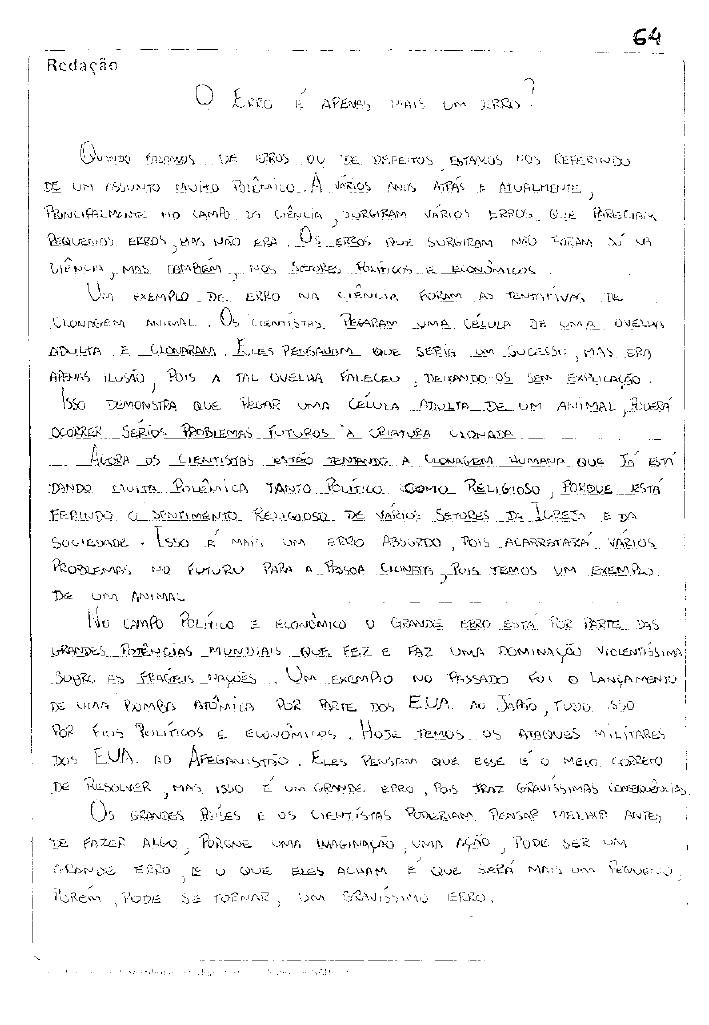 64
Redação
O ERRO É APENAS MAIS UM ERRO?
QUANDO FALAMOS DE ERROS OU DE DEFEITOS, ESTAMOS NOS REFERINDO
DE UM ASSUNTO MUITO POLÊMICO. A VÁRIOS ANOS ATRÁS E ATUALMENTE,
PRINCIPALMENTE NO CAMPO DA CIÊNCIA, SURGIRAM VÁRIOS ERROS QUE PARECIAM
PEQUENOS ERROS, MAS NÃO ERA. OS ERROS QUE SURGIRAM NÃO FORAM SÓ NA
CIÊNCIA, MAS TAMBÉM, NOS SETORES POLÍTICOS E ECONÔMICOS.
UM EXEMPLO DE ERRO NA CIÊNCIA FORAM AS TENTATIVAS DE
CLONAGEM ANIMAL. OS CIENTISTAS PEGARAM UMA CÉLULA DE UMA OVELHA
ADULTA E CLONARAM. ELES PENSAVAM QUE SERIA UM SUCESSO, MAS ERA
APENAS ILUSÃO, POIS A TAL OVELHA FALECEU, DEIXANDO-OS SEM EXPLICAÇÃO.
ISSO DEMONSTRA QUE PEGAR UMA CÉLULA ADULTA DE UM ANIMAL, PODERÁ
OCORRER SÉRIOS PROBLEMAS FUTUROS À CRIATURA CLONADA
AGORA OS CIENTISTAS ESTÃO TENTANDO A CLONAGEM HUMANA QUE JÁ ESTÁ
DANDO MUITA POLÊMICA TANTO POLÍTICO COMO RELIGIOSO, PORQUE ESTÁ
FERINDO O SENTIMENTO RELIGIOSO DE VÁRIOS SETORES DA IGREJA E DA
SOCIEDADE. ISSO É MAIS UM ERRO ABSURDO, POIS ACARRETARÁ VÁRIOS
PROBLEMAS NO FUTURO PARA A PESSOA CLONADA, POIS TEMOS UM EXEMPLO
DE UM ANIMAL
NO CAMPO POLÍTICO E ECONÔMICO O GRANDE ERRO ESTÁ POR PARTE DAS
GRANDES POTÊNCIAS MUNDIAIS QUE FEZ E FAZ UMA DOMINAÇÃO VIOLENTÍSSIMA
SOBRE AS FRÁGEIS NAÇÕES. UM EXEMPLO NO PASSADO FOI O LANÇAMENTO
DE UMA BOMBA ATÔMICA POR PARTE DOS EUA AO JAPÃO, TUDO ISSO
POR FINS POLÍTICOS E ECONÔMICOS. HOJE TEMOS OS ATAQUES MILITARES
DOS EUA AO AFEGANISTÃO. ELES PENSAM QUE ESSE É O MEIO CORRETO
DE RESOLVER, MAS ISSO É UM GRANDE ERRO, POIS TRAZ GRAVÍSSIMAS CONSEQUÊNCIAS.
OS GRANDES PAÍSES E OS CIENTISTAS PODERIAM PENSAR MELHOR ANTES
DE FAZER ALGO, PORQUE UMA IMAGINAÇÃO, UMA AÇÃO, PODE SER UM
GRANDE ERRO, E O QUE ELES ACHAM É QUE SERÁ MAIS UM PEQUENO,
PORÉM, PODE SE TORNAR, UM GRAVÍSSIMO ERRO.